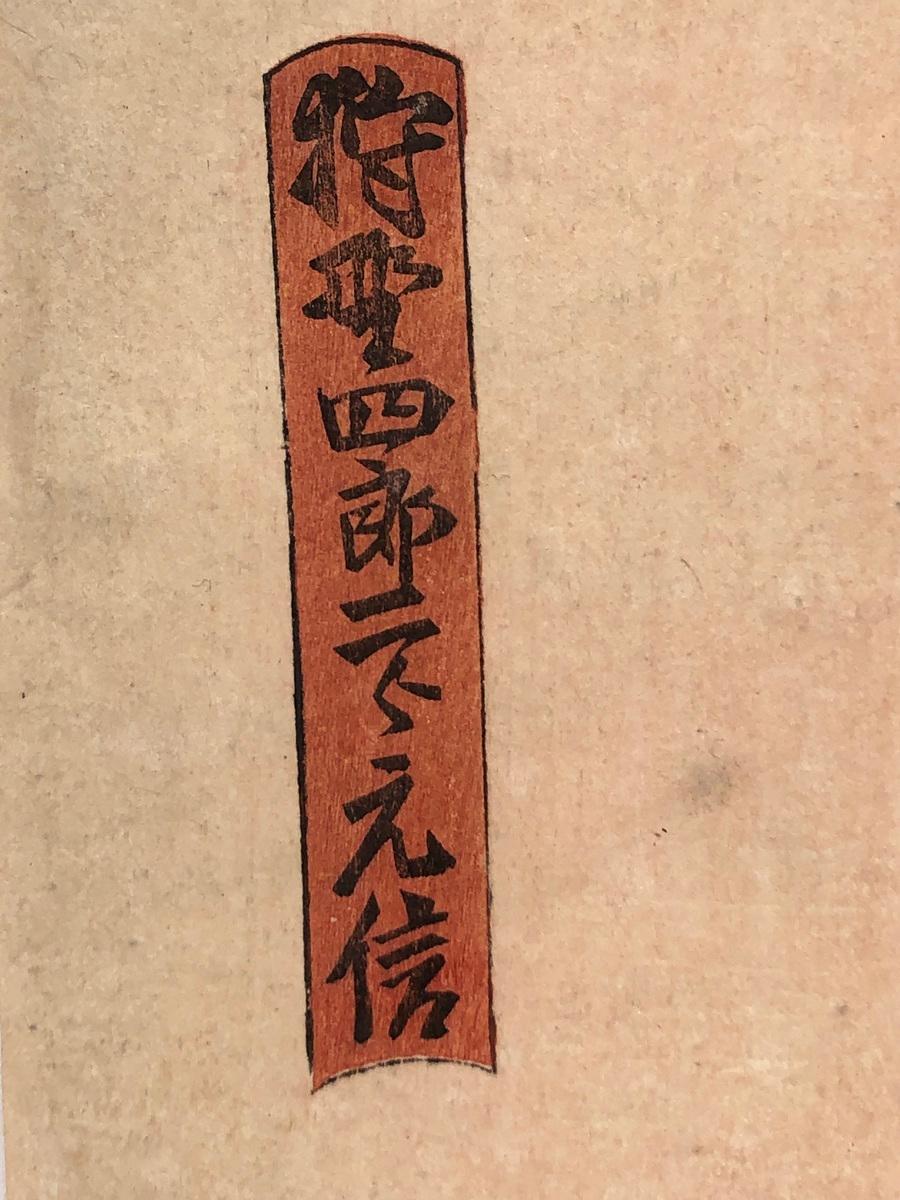 狩野四郎二郎元信